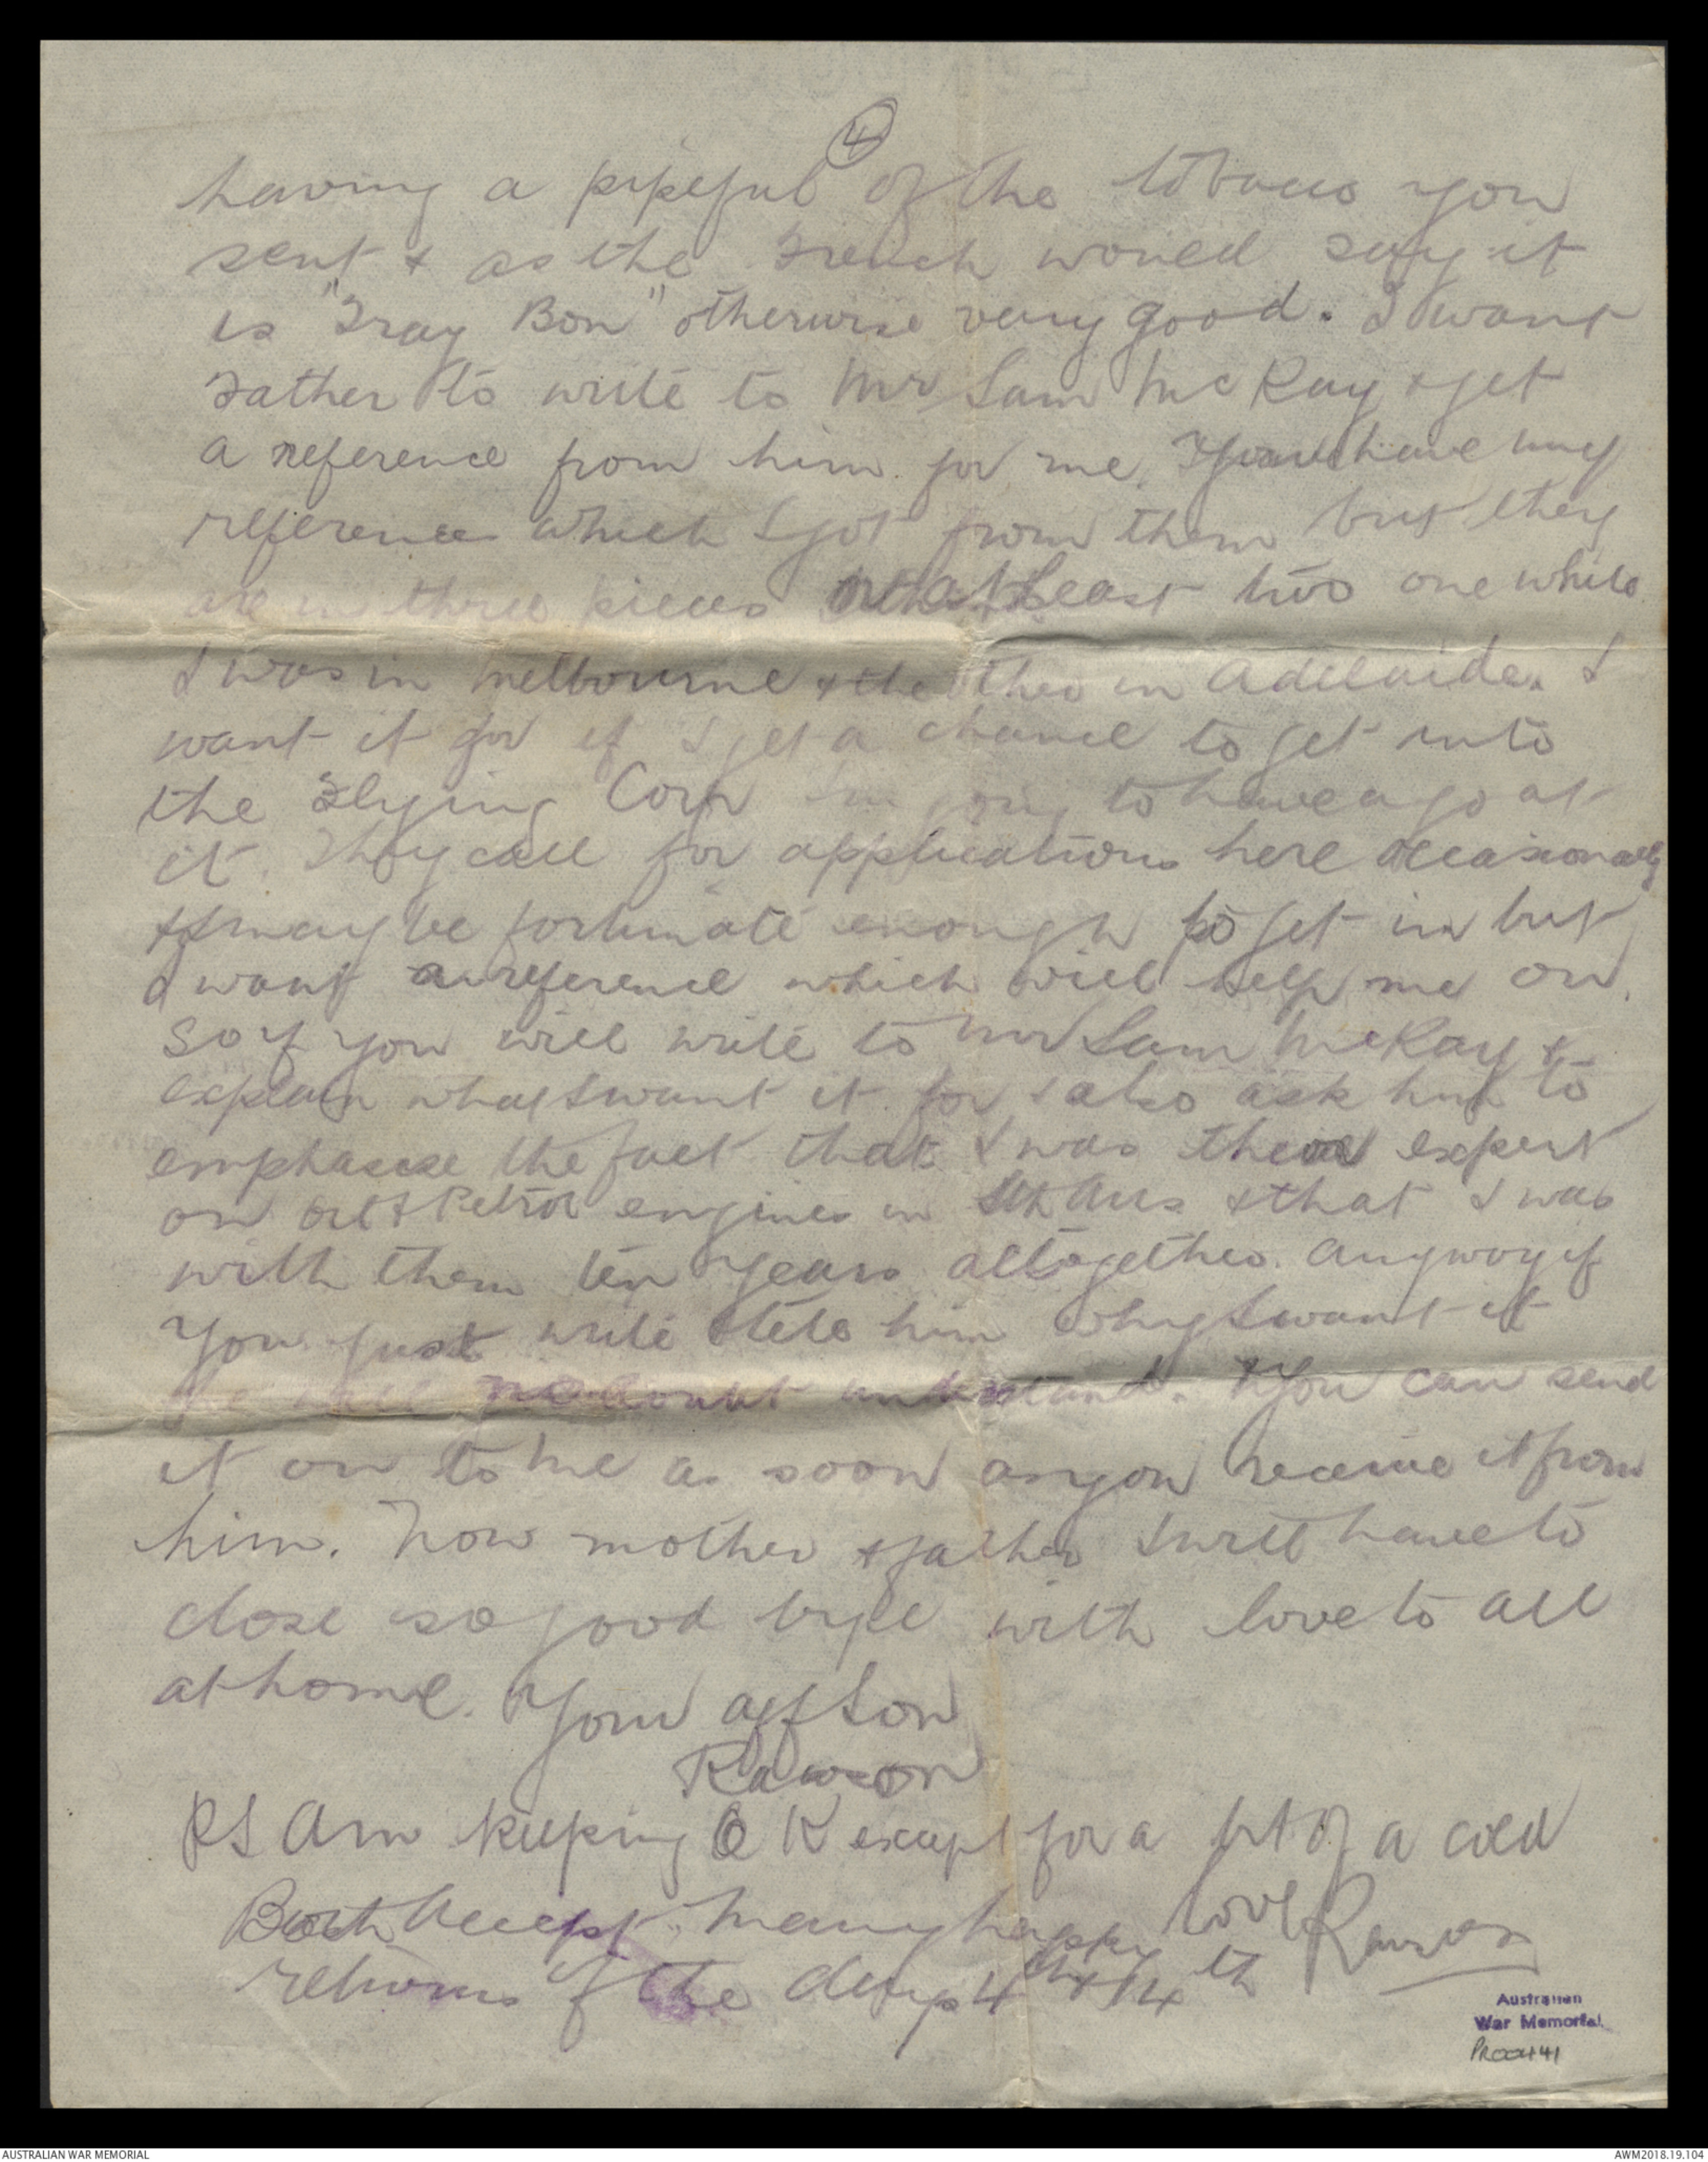 4
having a pipeful of the tobacco you
sent & as the French would say it
is "Tray Bon" otherwise very good. I want
Father to write to Mr Sam McKay & get
a reference from him for me. You have my
references which I got from them but they
are in three pieces at least two one while
I was in Melbourne & the other in Adelaide. I
want it for if I get a chance to get into
the Flying Corp I'm going to have a go at
it. They call for applications here occasionally
& I may be fortunate enough to get in but
I want a reference which will help me on.
So if you will write to Mr Sam McKay &
explain what I want it for & also ask him to
emphasise the fact that I was their expert
on oil & Petrol engines in Sth Aus & that I was
with them ten years altogether. Anyway if
you just write & tell him why I want it
he will no doubt understand. You can send
it on to me as soon as you receive it from
him. Now mother & father I will have to
close so good bye with love to all
at home. Your aff Son
Rawson
PS Am keeping O K except for a bit of a cold
Both Accept many happy love Rawson
returns of the days 4th & 14th
Australian
War Memorial
PR00441
AUSTRALIAN WAR MEMORIAL
AWM2018.19.104